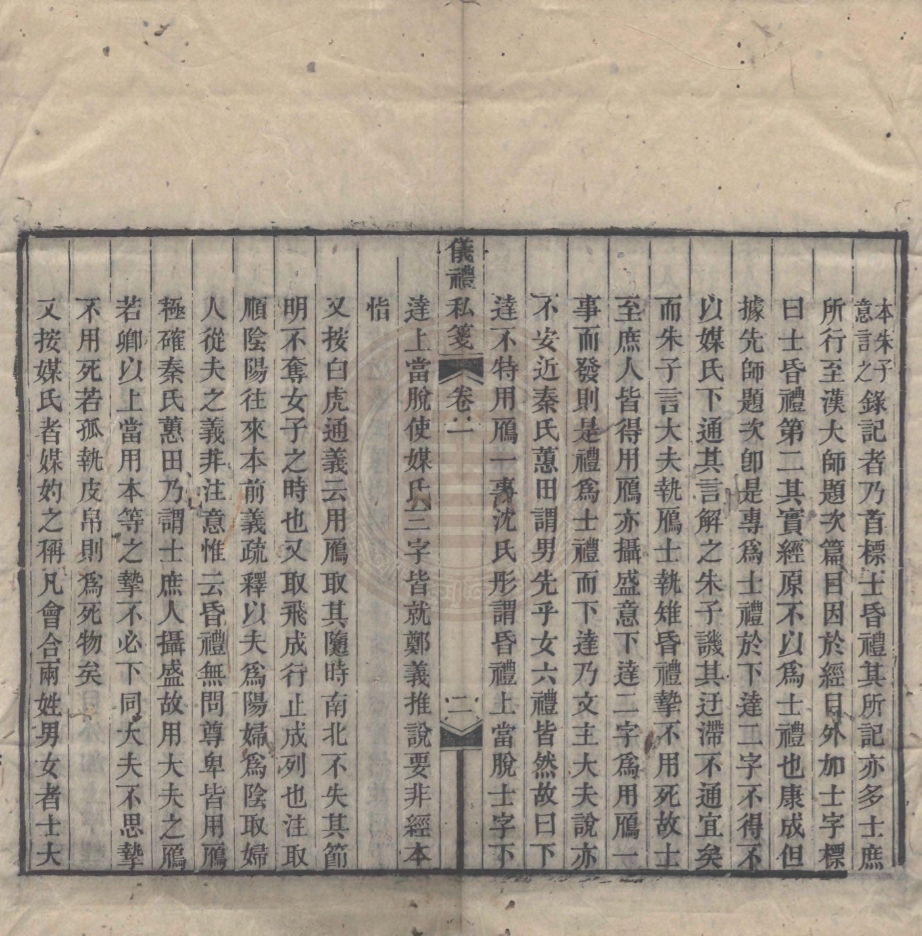 本朱子
意言之
錄記者乃首標士昏禮其所記亦多士庶
所行至漢大師題次篇目因於經目外加士字標
曰士昏禮第二其實經原不以爲士禮也康成但
據先師題次卽是專爲士禮於下達二字不得不
以媒氏下通其言解之朱子譏其迂滯不通宜矣
而朱子言大夫執鴈士執雉昏禮摯不用死故士
至庶人皆得用鴈亦攝盛意下達二字爲用鴈一
事而發則是禮爲士禮而下達乃文主大夫說亦
不安近秦氏蕙田謂男先乎女六禮皆然故曰下
達不特用鴈一事沈氏彤謂昏禮上當脫士字下
儀禮私箋
卷二
二
達上當脫使媒氏三字皆就鄭義推說要非經本
恉
又按白虎通義云用鴈取其隨時南北不失其節
明不奪女子之時也又取飛成行止成列也注取
順陰陽往來本前義疏釋以夫爲陽婦爲陰取婦
人從夫之義非注意惟云昏禮無問尊卑皆用鴈
極確秦氏蕙田乃謂士庶人攝盛故用大夫之鴈
若卿以上當用本等之摯不必下同大夫不思摯
不用死若孤執皮帛則爲死物矣
又按媒氏者媒妁之稱凡會合兩姓男女者士大